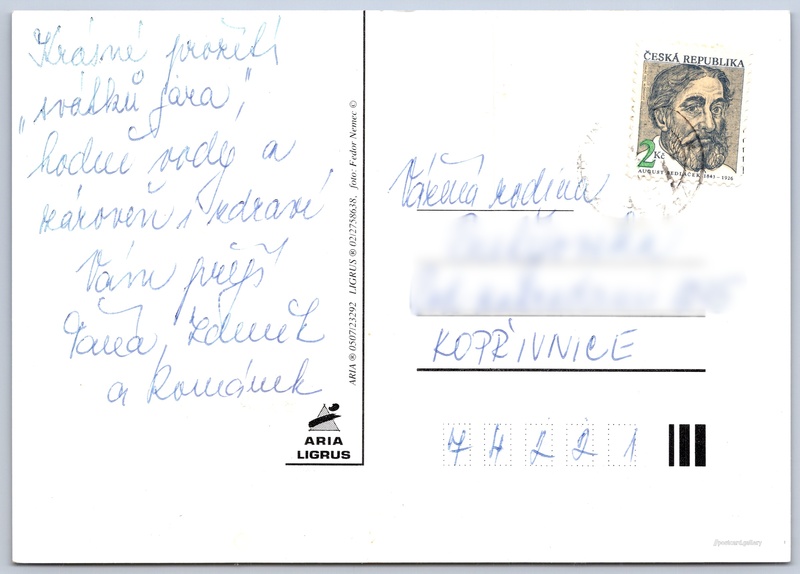 Krásné prožití
„svátků jara",
hodně vody a
zároveň i zdraví
Vám přejí
Táňa, Zdeněk
a Románek
ARIA ® 0507/23292 LIGRUS ® 02/2758638, foto: Fedor Nemec ©
ARIA
LIGRUS
ČESKÁ REPUBLIKA
2 Kč
AUGUST SEDLÁČEK 1843 - 1926
Vážená rodina
KOPŘIVNICE
74221
postcard.gallery